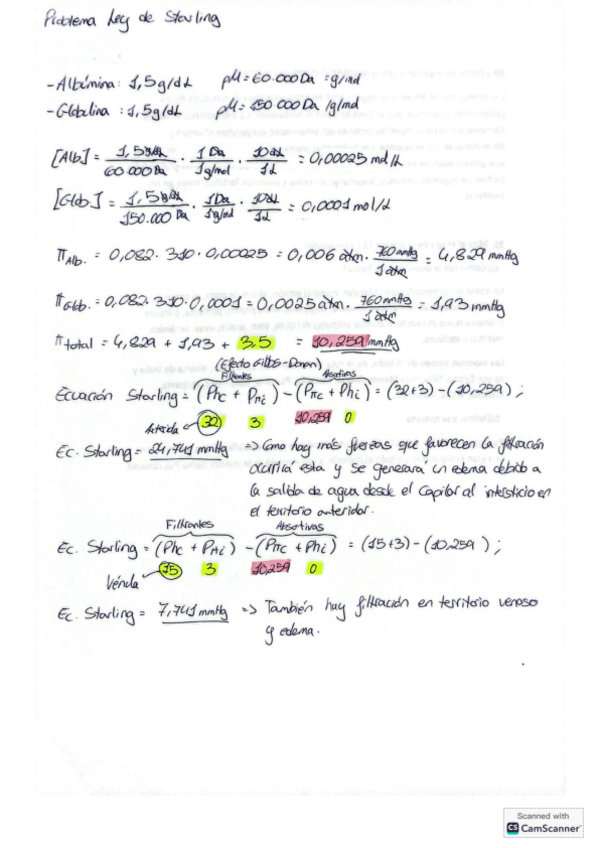 Problema Ley de Starling
- Albúmina: 1,5g/dL pM = 60.000 Da = g/mol
- Globulina: 1,5g/dL pM = 150 000 Da /g/mol
[Alb] = 1,5g/dL / 60 000 Da · 1 Da / 1g/mol · 10dL / 1L = 0,00025 mol/L
[Glob] = 1,5g/dL / 150.000 Da · 1Da / 1g/mol · 10dL / 1L = 0,0001 mol/L
πAlb. = 0,082 · 310 · 0,00025 = 0,006 atm · 760 mmHg / 1 atm = 4,829 mmHg
πGlob. = 0,082 · 310 · 0,0001 = 0,0025 atm · 760 mmHg / 1 atm = 1,93 mmHg
πtotal = 4,829 + 1,93 + 3,5 = 10,259 mmHg
(Efecto Gibbs-Donan)
Filtrantes Absortivas
Ecuación Starling = (Phc + Pπi) - (Pπc + Phi) = (32+3) - (10,259) ;
Arteriola 32 3 10,259 0
Ec. Starling = 24,741 mmHg => Como hay más fuerzas que favorecen la filtración
ocurrirá esta y se generará un edema debido a
la salida de agua desde el capilar al intersticio en
el territorio anteridor.
Filtrantes Absortivas
Ec. Starling = (Phc + Pπi) - (Pπc + Phi) = (15+3) - (10,259) ;
Vénula 15 3 10,259 0
Ec. Starling = 7,741 mmHg => También hay filtración en territorio venoso
y edema.
Scanned with
CS CamScanner